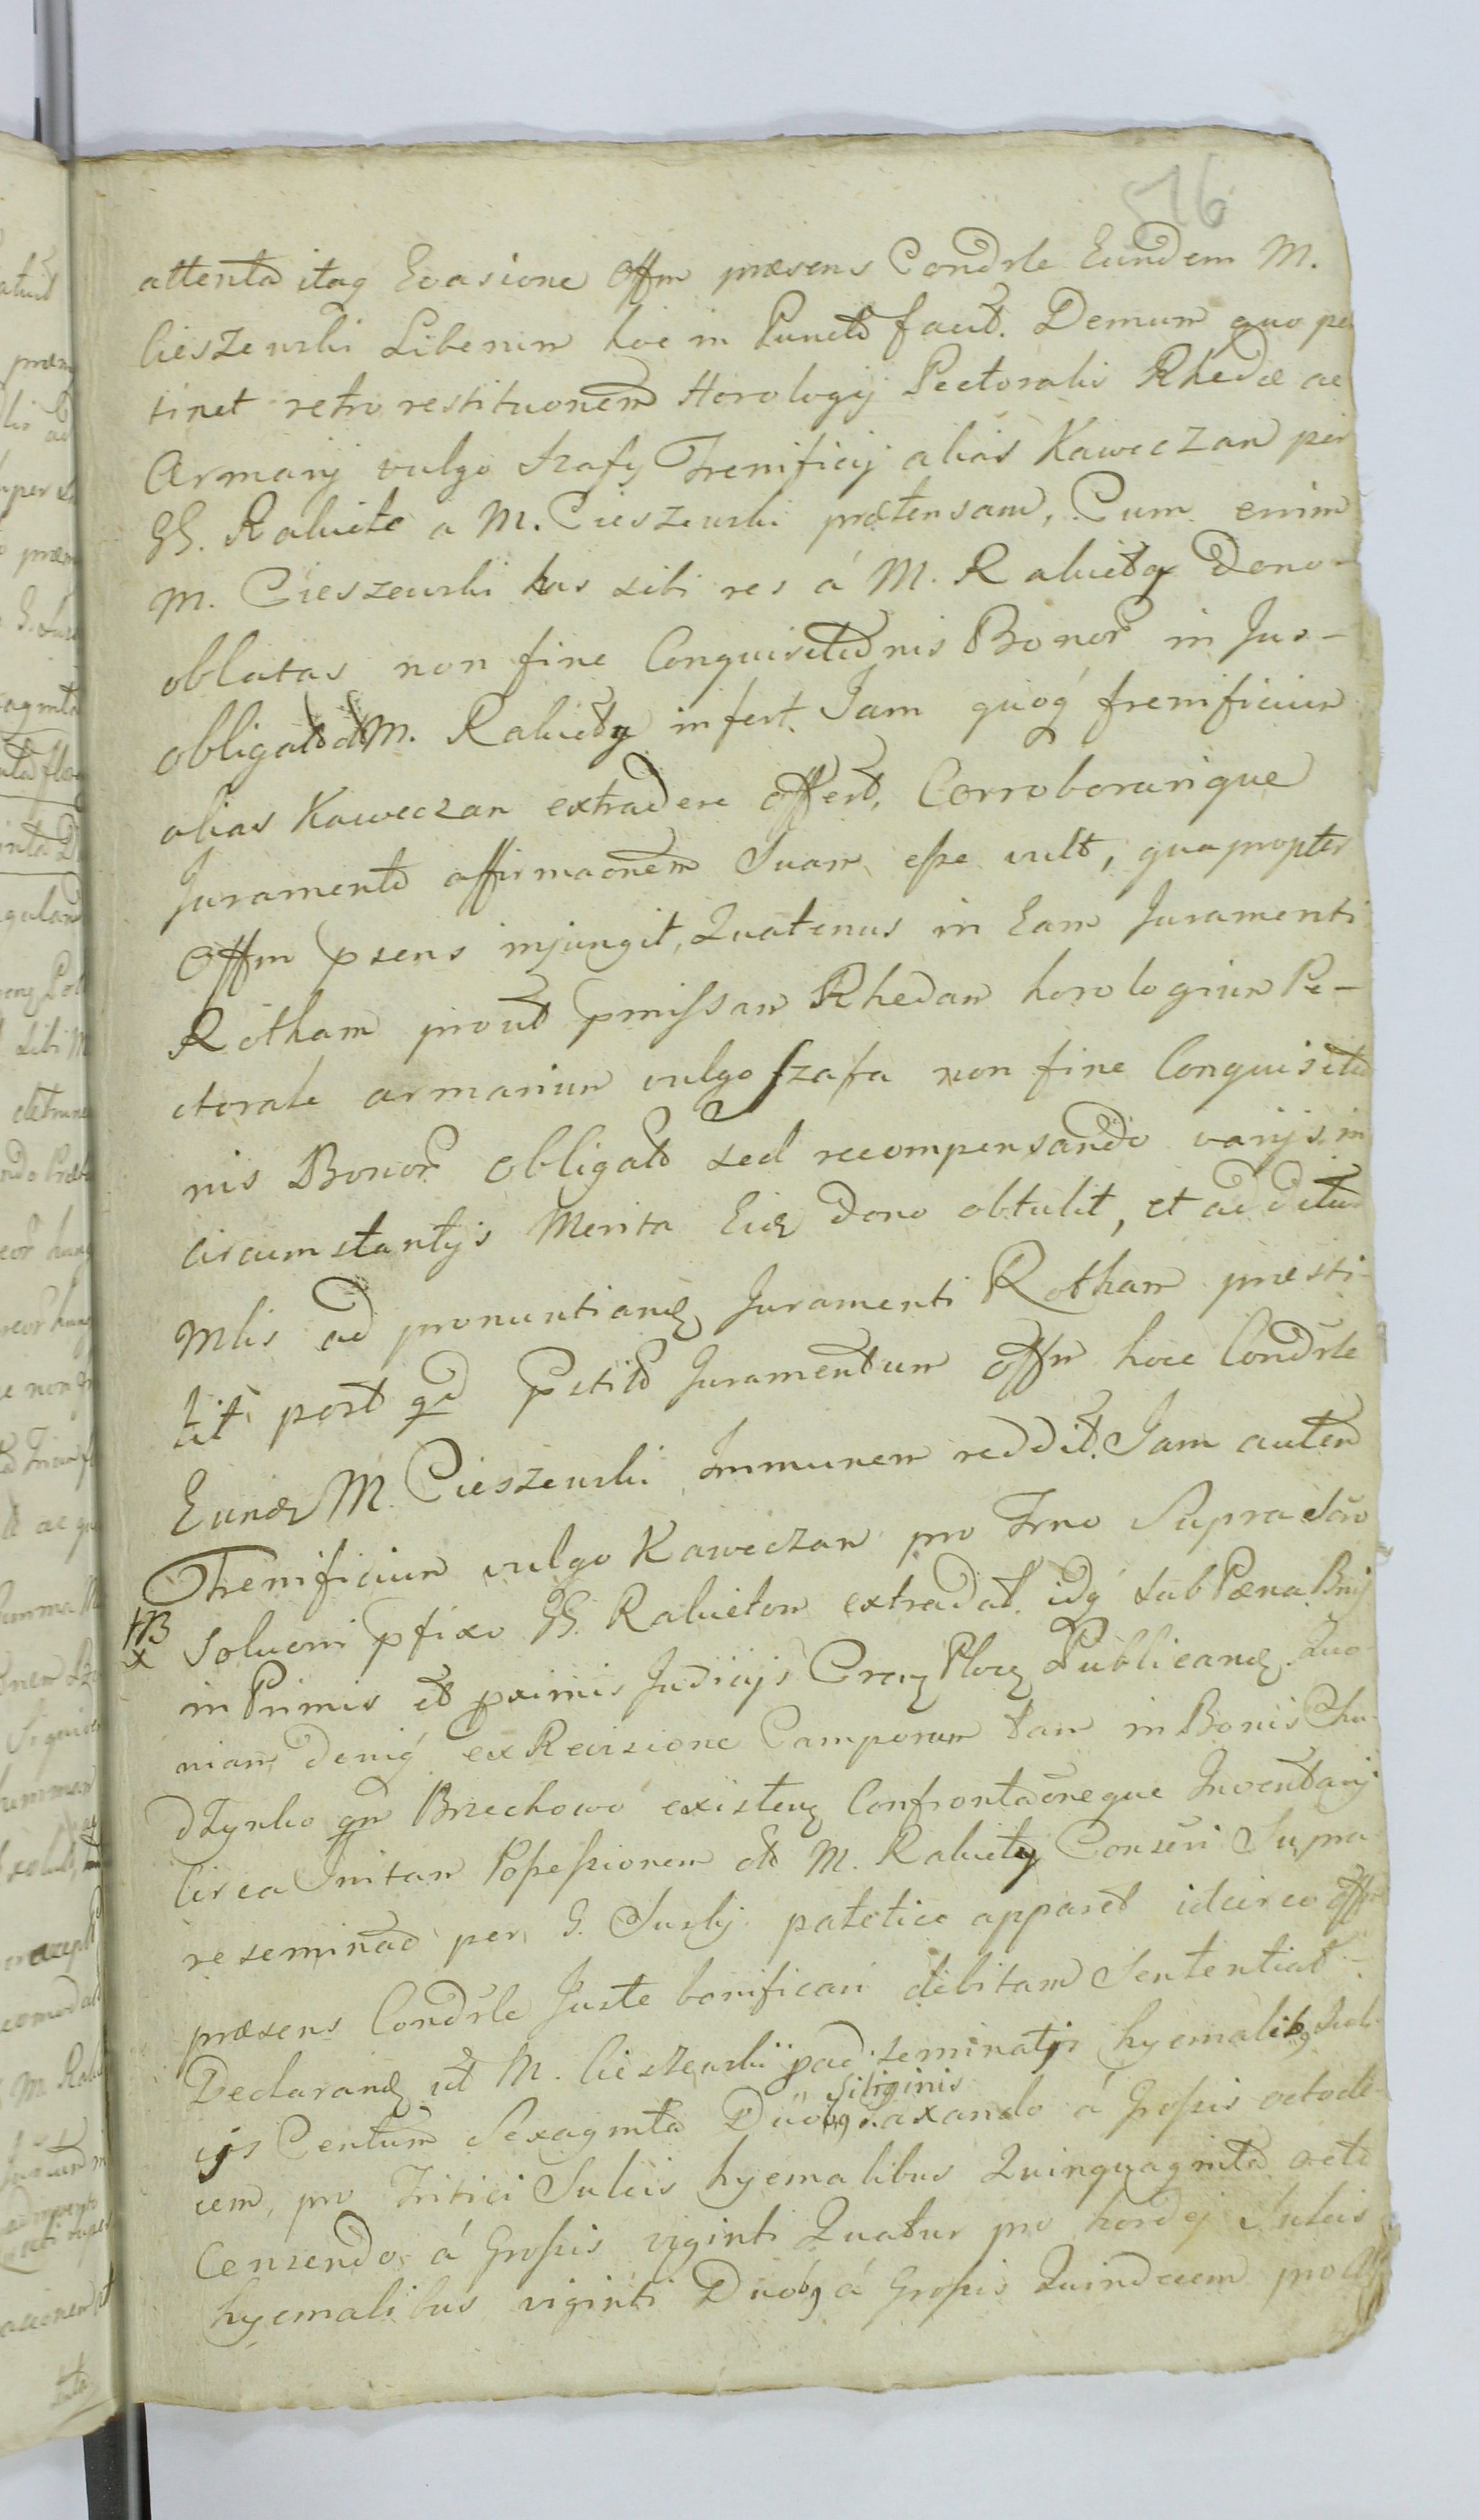 516
attenta itaq Evasione Offm præsens Condrle Eundem M.
Cieszewski Liberum hoc in Puncto facit. Demum quo per
tinet retrorestituonem Horologij Pectoralis Rhedæ ac
Armarij vulgo Szafy Frenificij alias Kaweczan per
GG. Rabieto a M. Cieszewski prætensam, Cum enim
M. Cieszewski has sibi res á M. Rabiety Dono
oblatas non fine Conquisitionis Bonor in Jus
obligato M. Rabiety infert. Jam quoq frenificium
alias Kaweczan extradere offert, Corroborarique
Juramento affirmaonem Suam esse vult, quapropter
Offm psens injungit, Quatenus in Eam Juramenti
Rotham prout pmissam Rhedam horologium Pe-
ctorale armarium vulgo Szafa non fine Conquisitio
nis Bonor obligato sed recompensando varijs in
circumstantijs Merita Eid Dono obtulit, et ad
Mlis ad pronuntiand Juramenti Rotham præsti
tit post qd pstito Juramentum offm hocce Condrle
Eund M. Cieszewski Immunem reddit. Jam autem
Frenificium vulgo Kaweczan pro Frno Supra
Soluoni pfixo GG. Rabietom extradat idq sub Pæna Bnij
in Primis et pximis Judicijs Ploc Publicand Quo
niam deniq ex Revisione Camporum tam in Bonis Chu
dzynko qm Brzechowo existen Confrontaoneque Inventarij
Circa Initam Possessionem M. Rabiety Conseri Supra
reseminao per G. Suskj patetice apparet idcirco offm
præsens Condrle Juste bonificari debitam Sententiat
Declarand ut M. Cieszewski pad seminatis hyemalibq Sul-
cijs Centum Sexaginta Duobq Siliginis taxando á Grossis octode
cem, pro Tritici Sulcis hyemalibus Quinquaginta octo
Censendo á Grossis viginti Quatur pro hordej Sulcis
hyemalibus viginti Duobq á Grossis Quindecem pro